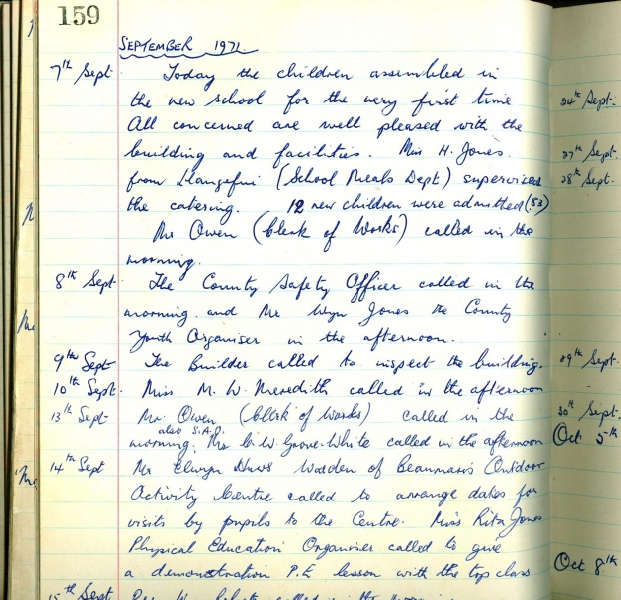 159
SEPTEMBER 1971.
7th Sept. Today the children assembled in
the new school for the very first time
All concerned are well pleased with the
building and facilities. Miss H. Jones.
from Llangefni (School Meals Dept) supervised
the catering. 12 new children were admitted (53)
Mr Owen (Clerk of Works) called in the
morning.
8th Sept The County Safety Officer called in the
morning and Mr Wyn Jones the County
Youth Organiser in the afternoon.
9th Sept The Builder called to inspect the building.
10th Sept. Miss M. W. Meredith called in the afternoon
13th Sept Mr Owen (Clerk of Works) called in the
also S.A.O.
morning. Mr C. W. Grove-White called in the afternoon
14th Sept Mr Elwyn Warden of Beaumaris Outdoor
Activity Centre called to arrange dates for
visits by pupils to the Centre. Miss Rita Jones
Physical Education Organiser called to give
a demonstration P.E lesson with the top class
15th Sept called in the
24th Sept.
27th Sept.
28th Sept.
29th Sept.
30th Sept.
Oct 5th
Oct 8th